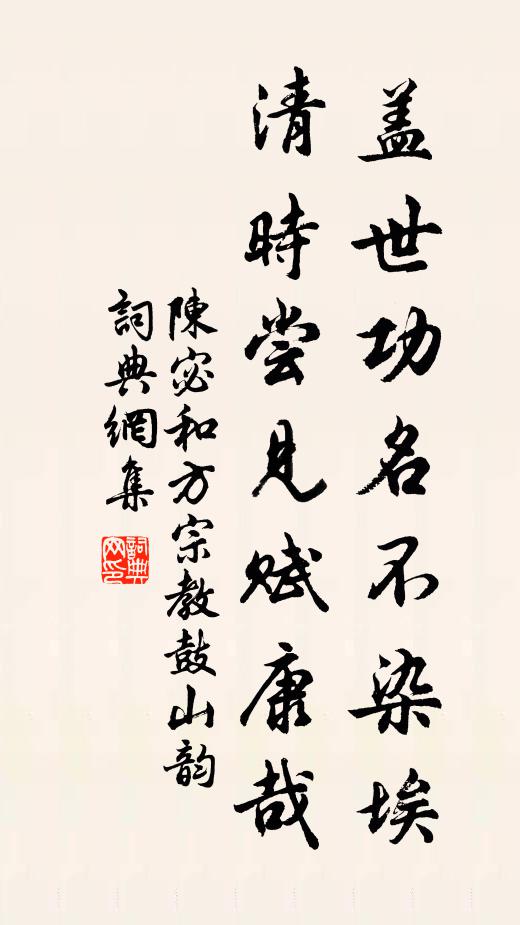 盖世功名不染埃
清時嘗見赋康哉
陳宓和方宗教鼓山韵
詞典網集
詞典网印